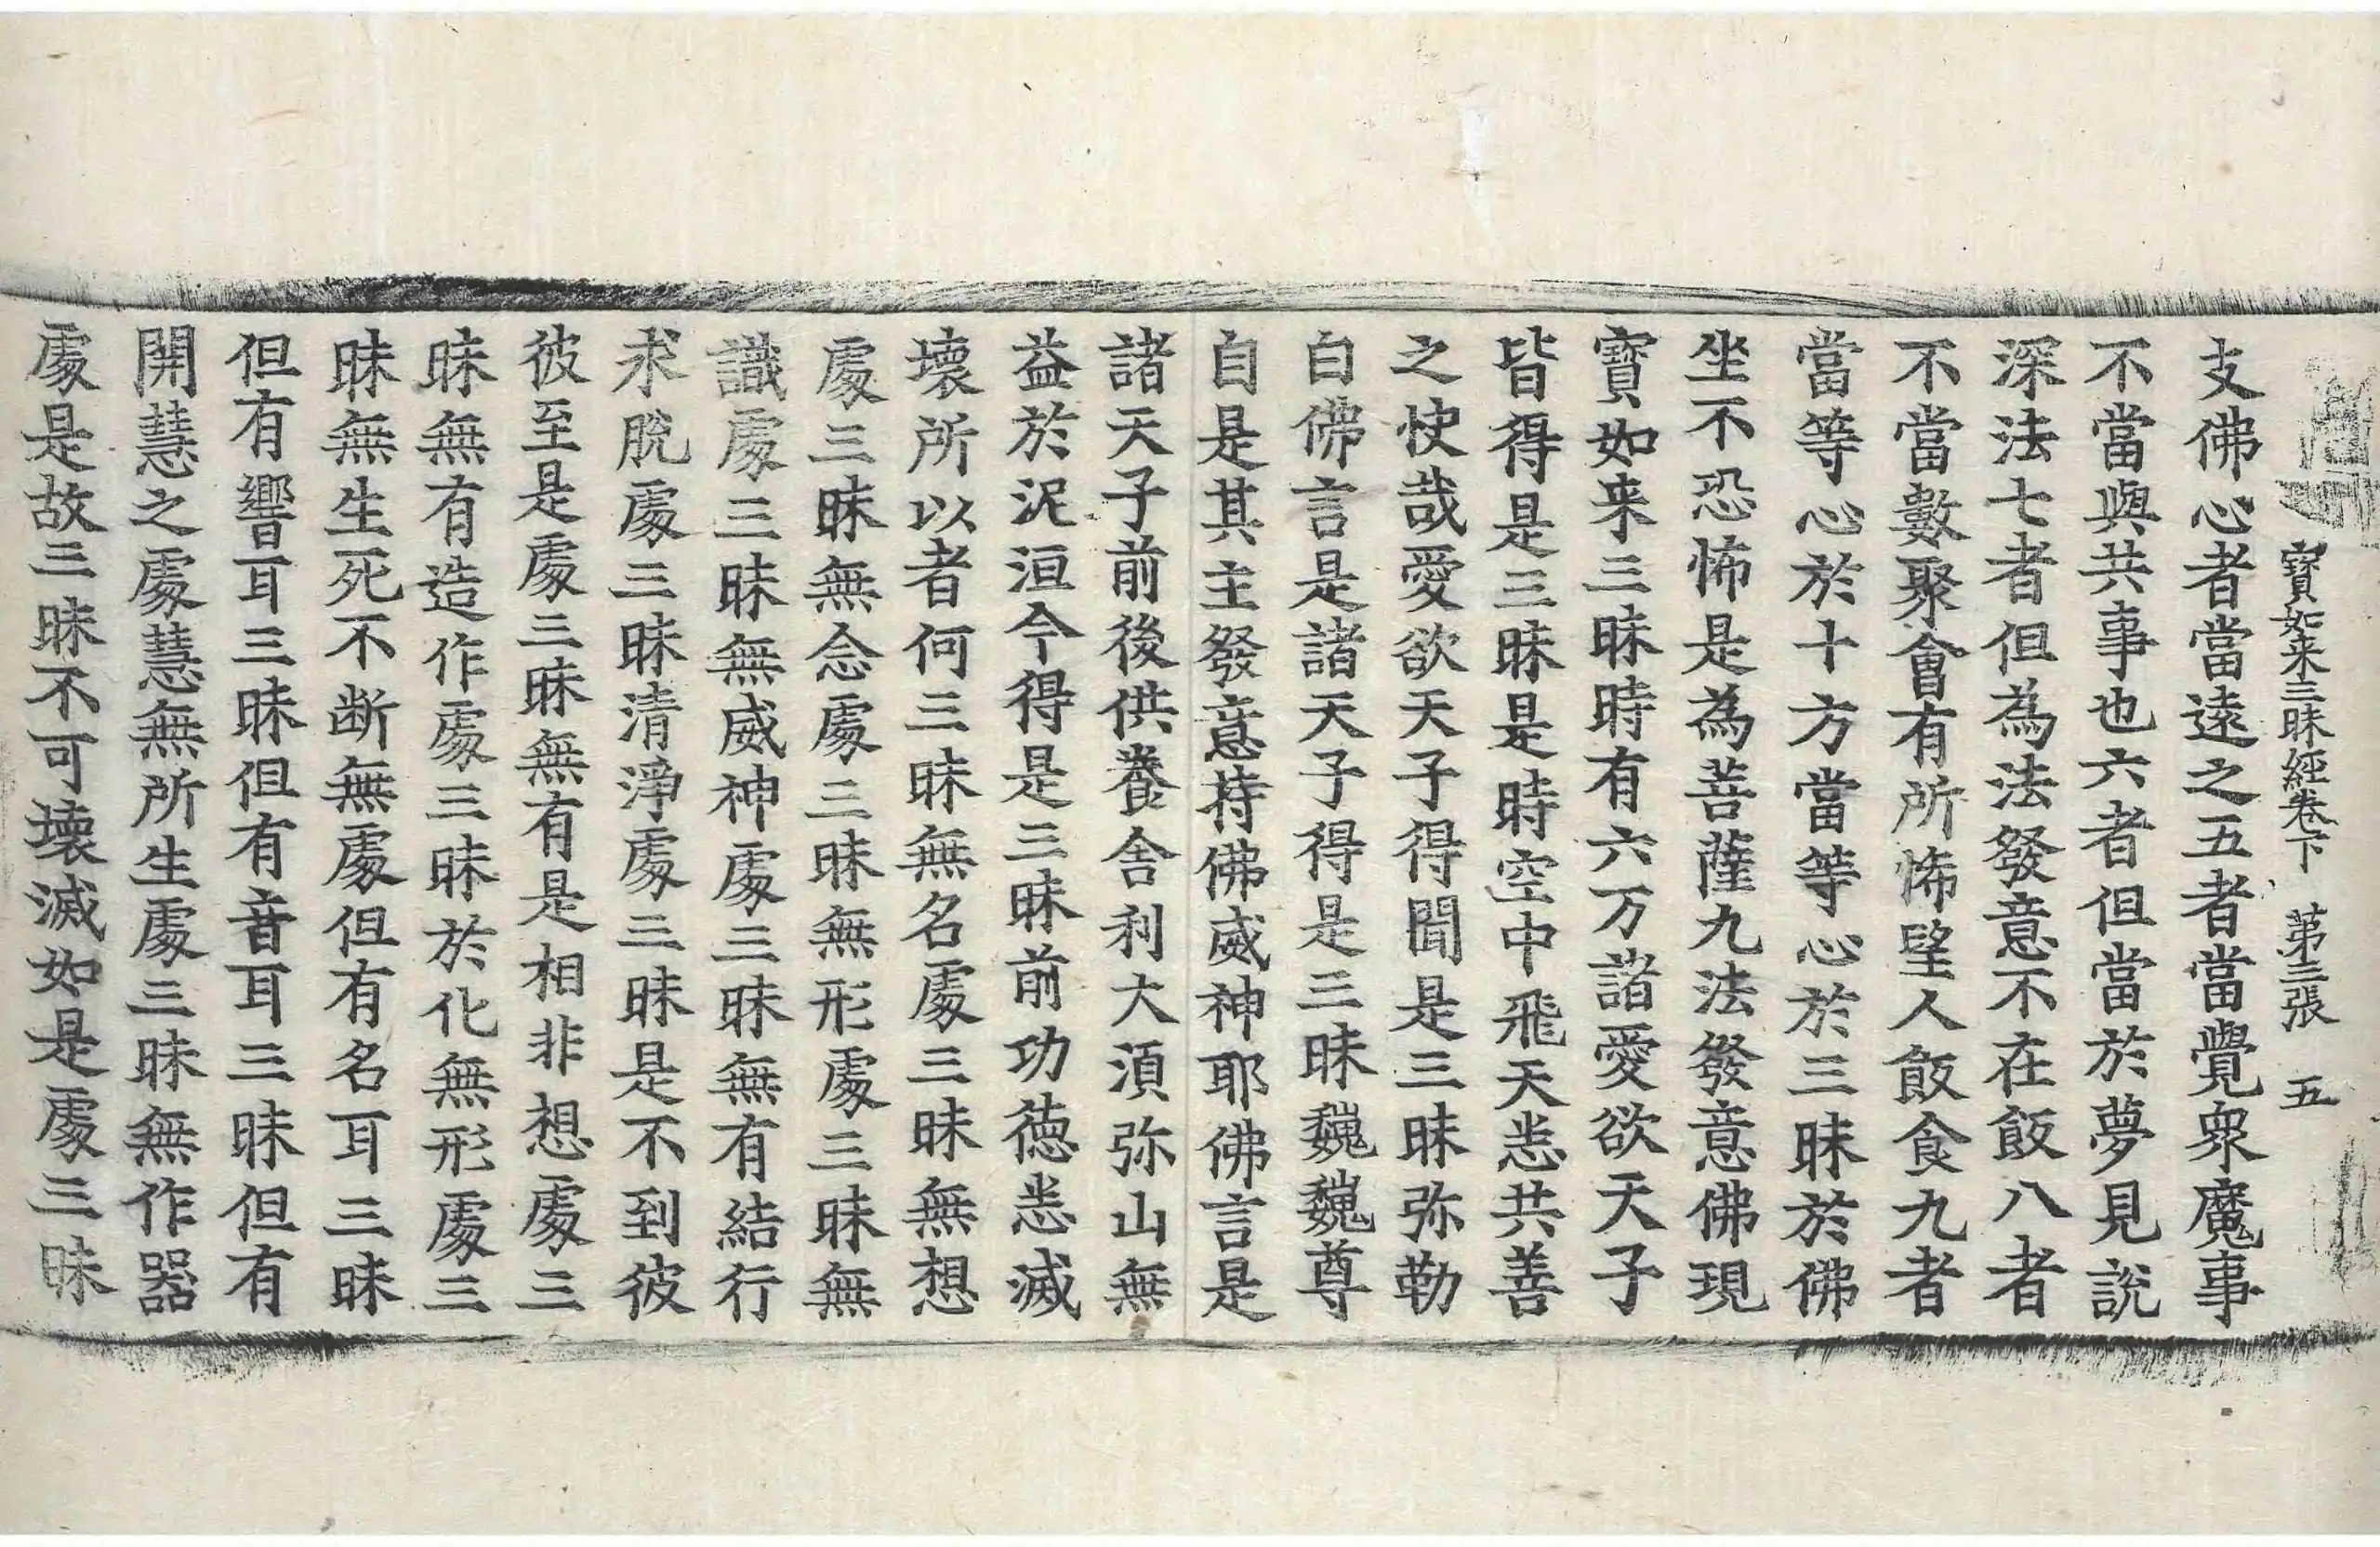 寶如来三昧經卷下 第三張 五
支佛心者當遠之五者當覺衆魔事
不當與共事也六者但當於夢見説
深法七者但為法發意不在飯八者
不當數聚會有所悕望人飯食九者
當等心於十方當等心於三昧於佛
坐不恐怖是為菩薩九法發意佛現
寶如来三昧時有六万諸愛欲天子
皆得是三昧是時空中飛天悉共善
之快哉愛欲天子得聞是三昧弥勒
白佛言是諸天子得是三昧巍巍尊
自是其主發意持佛威神耶佛言是
諸天子前後供養舍利大湏弥山無
益於泥洹今得是三昧前功德悉滅
壞所以者何三昧無名處三昧無想
處三昧無念處三昧無形處三昧無
識處三昧無威神處三昧無有結行
求脫處三昧清淨處三昧是不到彼
彼至是處三昧無有是相非想處三
昧無有造作處三昧於化無形處三
昧無生死不断無處但有名耳三昧
但有響耳三昧但有音耳三昧但有
開慧之處慧無所生處三昧無作器
處是故三昧不可壞滅如是處三昧